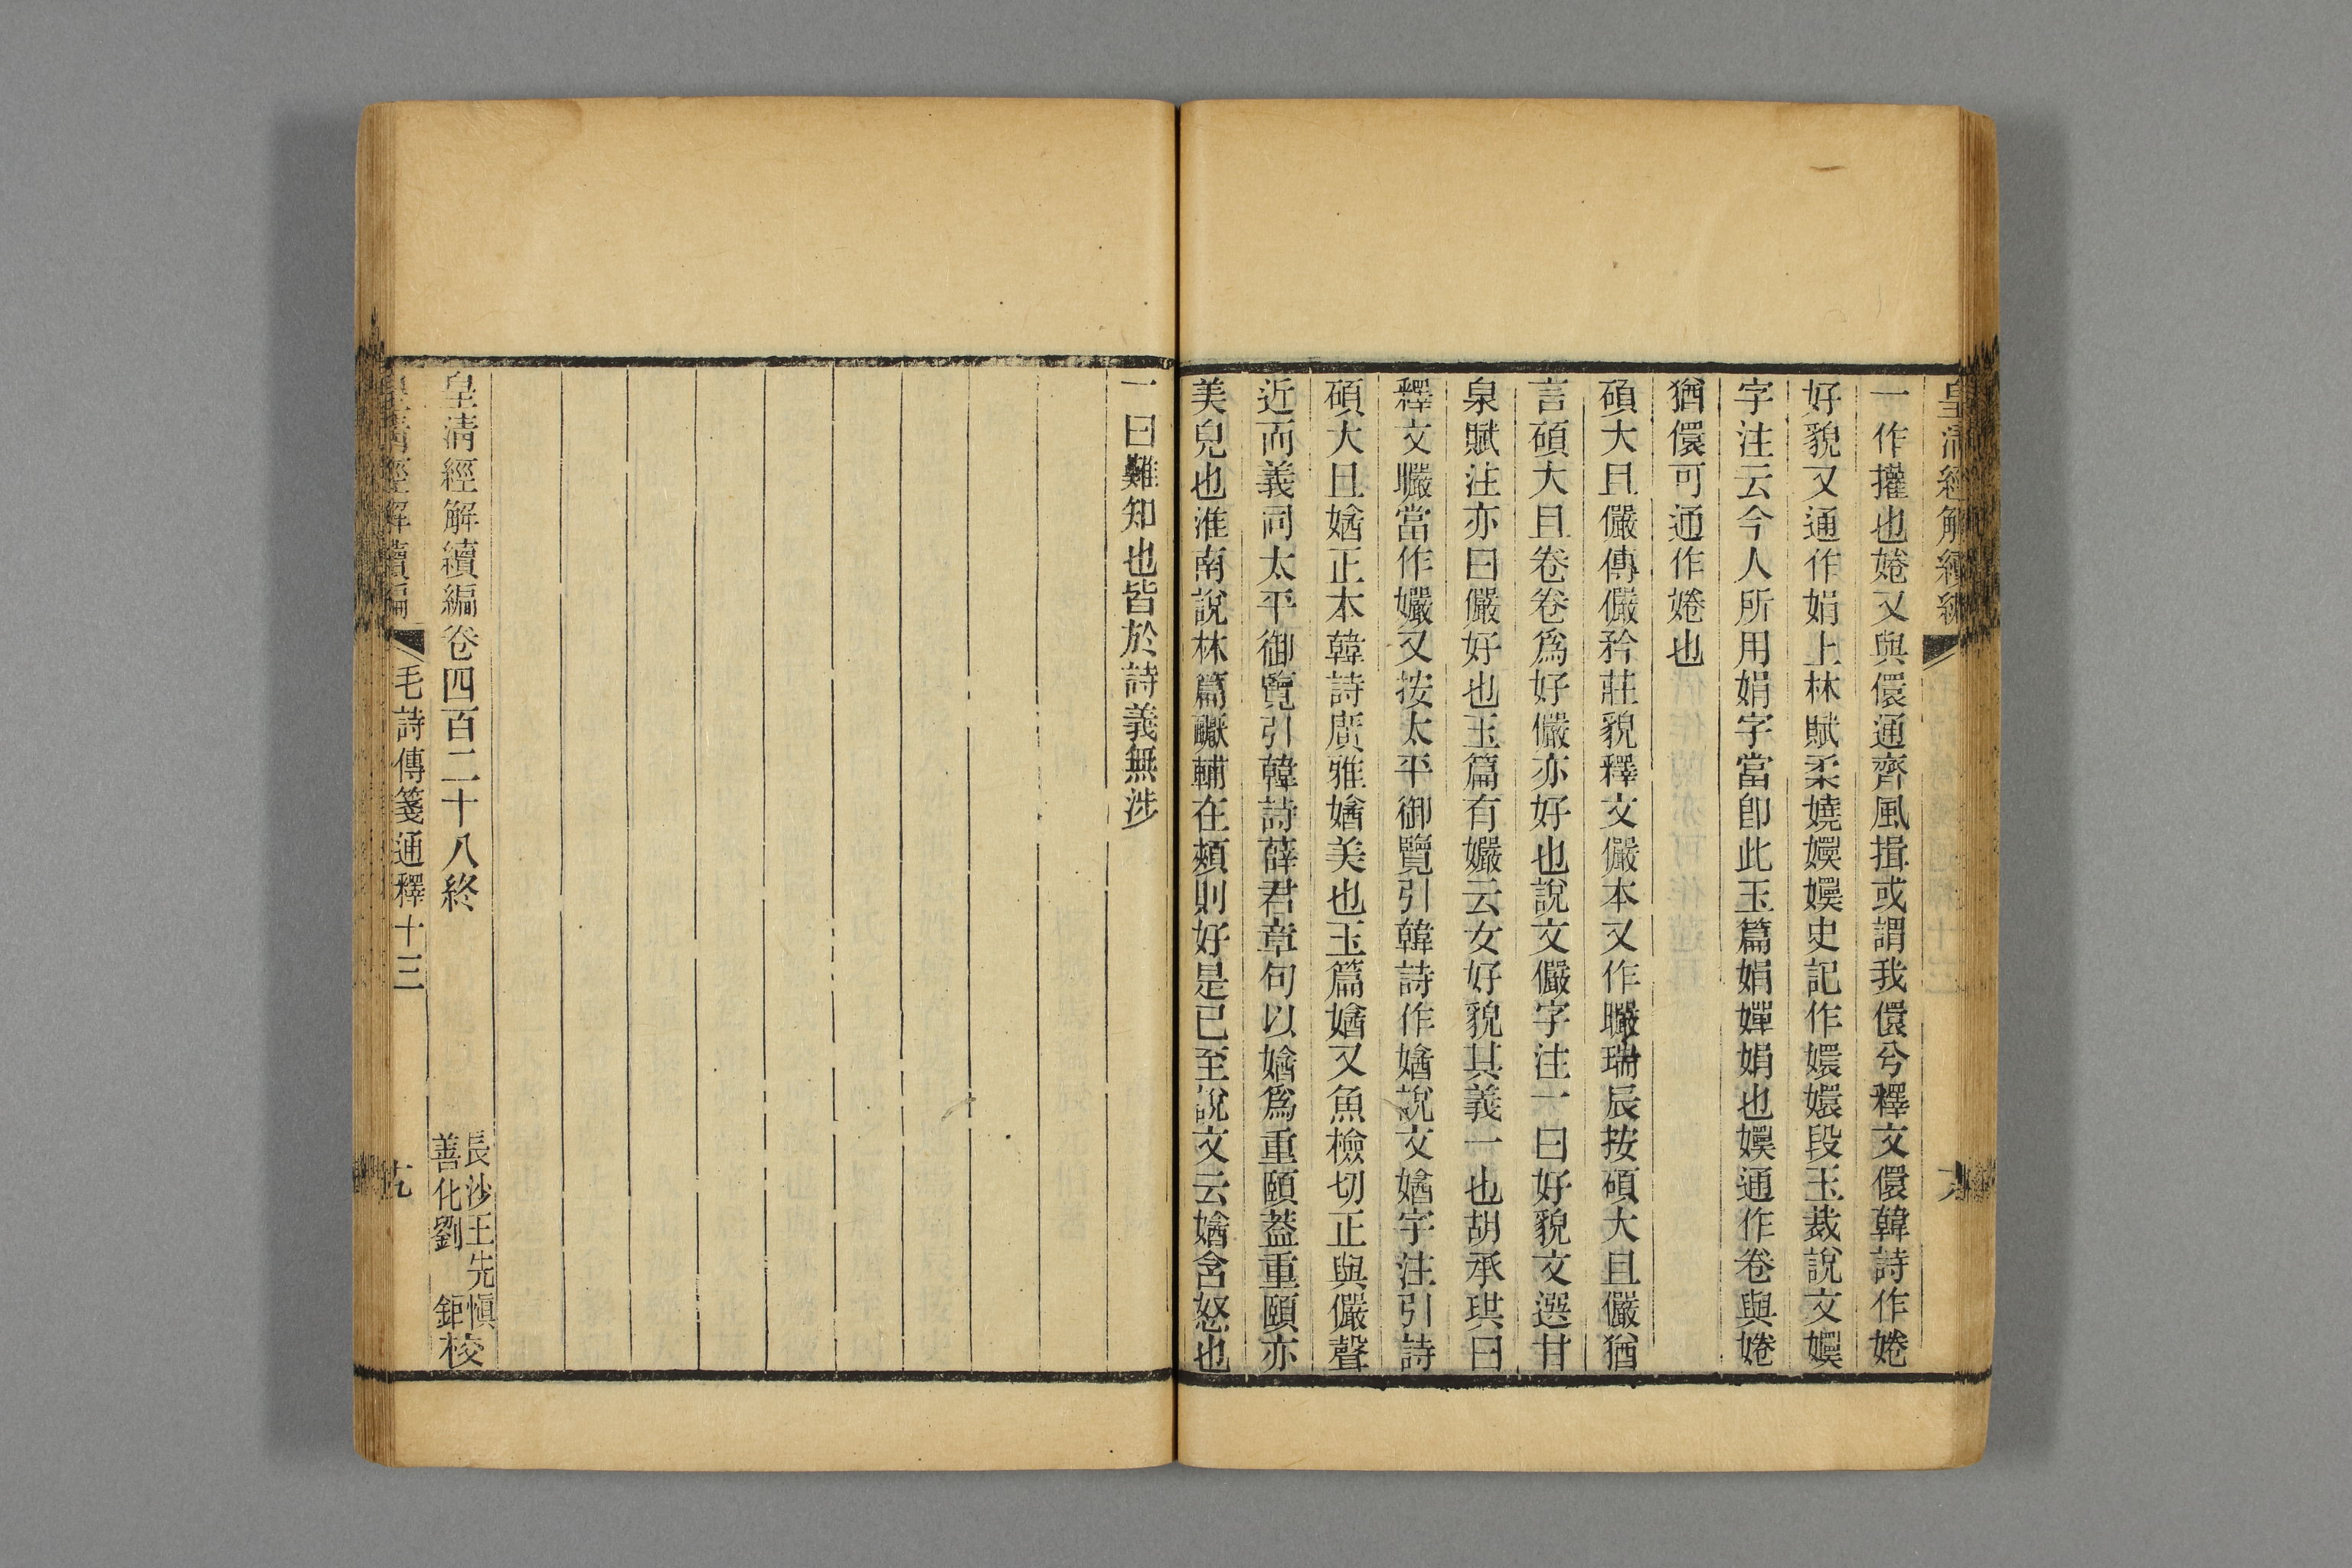 皇清經解續編
一作㩲也婘又與儇通齊風揖或謂我儇兮釋文儇韓詩作婘
好貌又通作娟上林賦柔嬈嬽嬽史記作嬛嬛段玉裁說文嬽
字注云今人所用娟字當卽此玉篇娟嬋娟也嬽通作卷與婘
猶儇可通作婘也
碩大且儼傳儼矜莊貌釋文儼本又作曮瑞辰按碩大且儼猶
言碩大且卷卷爲好儼亦好也說文儼字注一曰好貌文選甘
泉賦注亦曰儼好也玉篇有孍云女好貌其義一也胡承珙曰
釋文曮當作孍又按太平御覽引韓詩作㜝說文㜝字注引詩
碩大且㜝正本韓詩廣雅㜝美也玉篇㜝又魚檢切正與儼聲
近而義同太平御覽引韓詩薛君章句以㜝爲重頤葢重頤亦
美皃也淮南說林篇靨輔在頰則好是已至說文云㜝含怒也
一曰難知也皆於詩義無涉
皇清經解續編卷四百二十八終
長沙王先愼
善化劉 鉅校
皇清經解續編
毛詩傳箋通釋十三